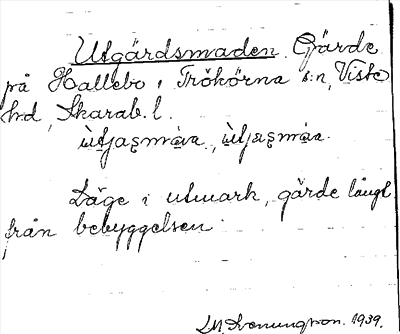 Utgärdsmaden. Gärde
på Hallebo i Trökörna s:n, Viste
hd, Skarab. l.
ùtjaṣmáɩa, ùtjaṣmáɩa.
Läge i utmark, gärde långt
från bebyggelsen.
Svenungsson. 1939.